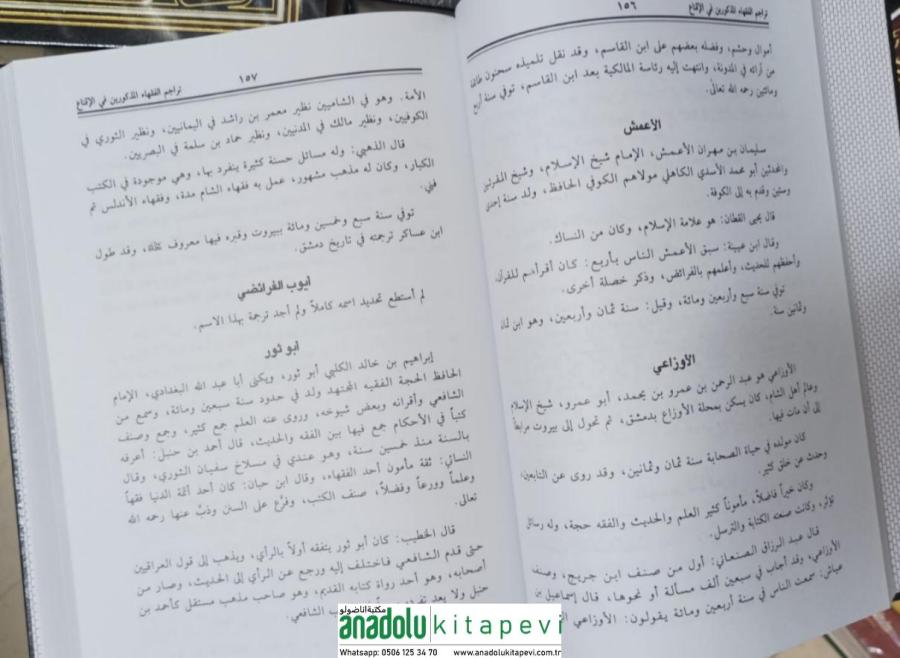 ١٥٦
تراجم الفقهاء المذكورين في الإقناع
أموال وحشم، وفضله بعضهم على ابن القاسم، وقد نقل تلميذه سحنون طائفة
من آرائه في المدونة، وانتهت إليه رئاسة المالكية بعد ابن القاسم، توفي سنة أربع
ومائتين رحمه الله تعالى.
الأعمش
سليمان بن مهران الأعمش، الإمام شيخ الإسلام، وشيخ المقرئين
والمحدثين أبو محمد الأسدي الكاهلي مولاهم الكوفي الحافظ، ولد سنة إحدى
وستين وقدم به إلى الكوفة.
قال يحيى القطان: هو علامة الإسلام، وكان من النساك.
وقال ابن عيينة: سبق الأعمش الناس بأربع: كان أقرأهم للقرآن
وأحفظهم للحديث، وأعلمهم بالفرائض، وذكر خصلة أخرى.
توفي سنة سبع وأربعين ومائة، وقيل: سنة ثمان وأربعين، وهو ابن ثمان
وثمانين سنة.
الأوزاعي
الأوزاعي هو عبد الرحمن بن عمرو بن يحمد، أبو عمرو، شيخ الإسلام
وعالم أهل الشام، كان يسكن بمحلة الأوزاع بدمشق، ثم تحول إلى بيروت مرابطاً
إلى أن مات فيها.
كان مولده في حياة الصحابة سنة ثمان وثمانين، وقد روى عن التابعين
وحدث عن خلق كثير.
وكان خيراً فاضلاً، مأموناً كثير العلم والحديث والفقه حجة، وله رسائل
تؤثر، وكانت صنعته الكتابة والترسل.
قال عبد الرزاق الصنعاني: أول من صنف ابن جريج، وصنف
الأوزاعي، وقد أجاب في سبعين ألف مسألة أو نحوها، قال إسماعيل بن
عياش: سمعت الناس في سنة أربعين ومائة يقولون: الأوزاعي
١٥٧
تراجم الفقهاء المذكورين في الإقناع
الأمة. وهو في الشاميين نظير معمر بن راشد في اليمانيين، ونظير الثوري في
الكوفيين، ونظير مالك في المدنيين، ونظير حماد بن سلمة في البصريين.
قال الذهبي: وله مسائل حسنة كثيرة ينفرد بها، وهي موجودة في الكتب
الكبار، وكان له مذهب مشهور، عمل به فقهاء الشام مدة، وفقهاء الأندلس ثم
فني.
توفي سنة سبع وخمسين ومائة ببيروت وقبره فيها معروف كذلك، وقد طول
ابن عساكر ترجمته في تاريخ دمشق.
أيوب الفرائضي
لم أستطع تحديد اسمه كاملاً ولم أجد ترجمة بهذا الاسم.
أبو ثور
إبراهيم بن خالد الكلبي أبو ثور، ويكنى أبا عبد الله البغدادي، الإمام
الحافظ الحجة الفقيه المجتهد ولد في حدود سنة سبعين ومائة، وسمع من
الشافعي وأقرانه وبعض شيوخه، وروى عنه العلم جمع كثير، وجمع وصنف
كتباً في الأحكام جمع فيها بين الفقه والحديث، قال أحمد بن حنبل: أعرفه
بالسنة منذ خمسين سنة، وهو عندي في مسلاخ سفيان الثوري، وقال
النسائي: ثقة مأمون أحد الفقهاء، وقال ابن حبان: كان أحد أئمة الدنيا فقهاً
وعلماً وورعاً وفضلاً، صنف الكتب، وفرّع على السنن وذبّ عنها رحمه الله
تعالى.
قال الخطيب: كان أبو ثور يتفقه أولاً بالرأي، ويذهب إلى قول العراقيين
حتى قدم الشافعي فاختلف إليه ورجع عن الرأي إلى الحديث، وصار من
أصحابه، وهو أحد رواة كتابه القديم، وهو صاحب مذهب مستقل كأحمد بن
حنبل ولا يعد الشافعي.
مكتبة اناضولو
anadolu kitapevi
Whatsapp: 0506 125 34 70 www.anadolukitapevi.com.tr